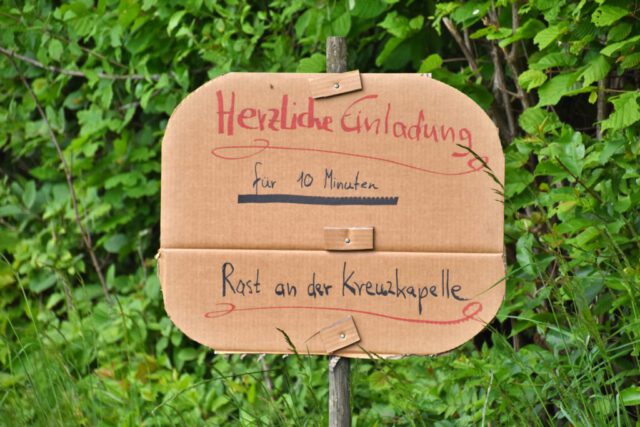 Herzliche Einladung
für 10 Minuten
Rast an der Kreuzkapelle